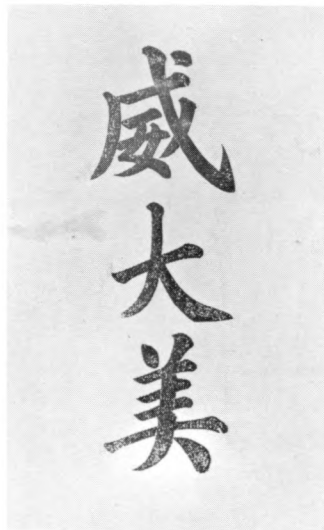 威大美